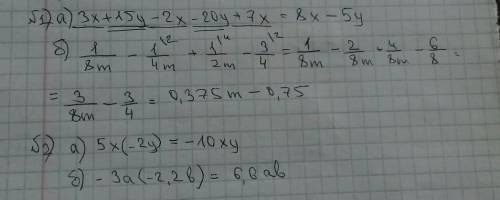 №1) а) 3x + 15y - 2x - 20y + 7x = 8x - 5y
б) 1/8m - 1\2/4m + 1\4/2m - 3\2/4 = 1/8m - 2/8m + 4/8m - 6/8 =
= 3/8m - 3/4 = 0,375m - 0,75
№2) а) 5x(-2y) = -10xy
б) -3a(-2,2b) = 6,6ab